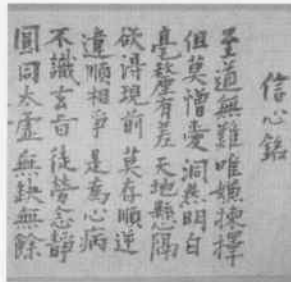 信心銘
至道無難唯嫌揀擇
但莫憎愛洞然明白
毫釐有差天地懸隔
欲得現前莫存順逆
違順相爭是為心病
不識玄旨徒勞念靜
圓同太虛無缺無餘